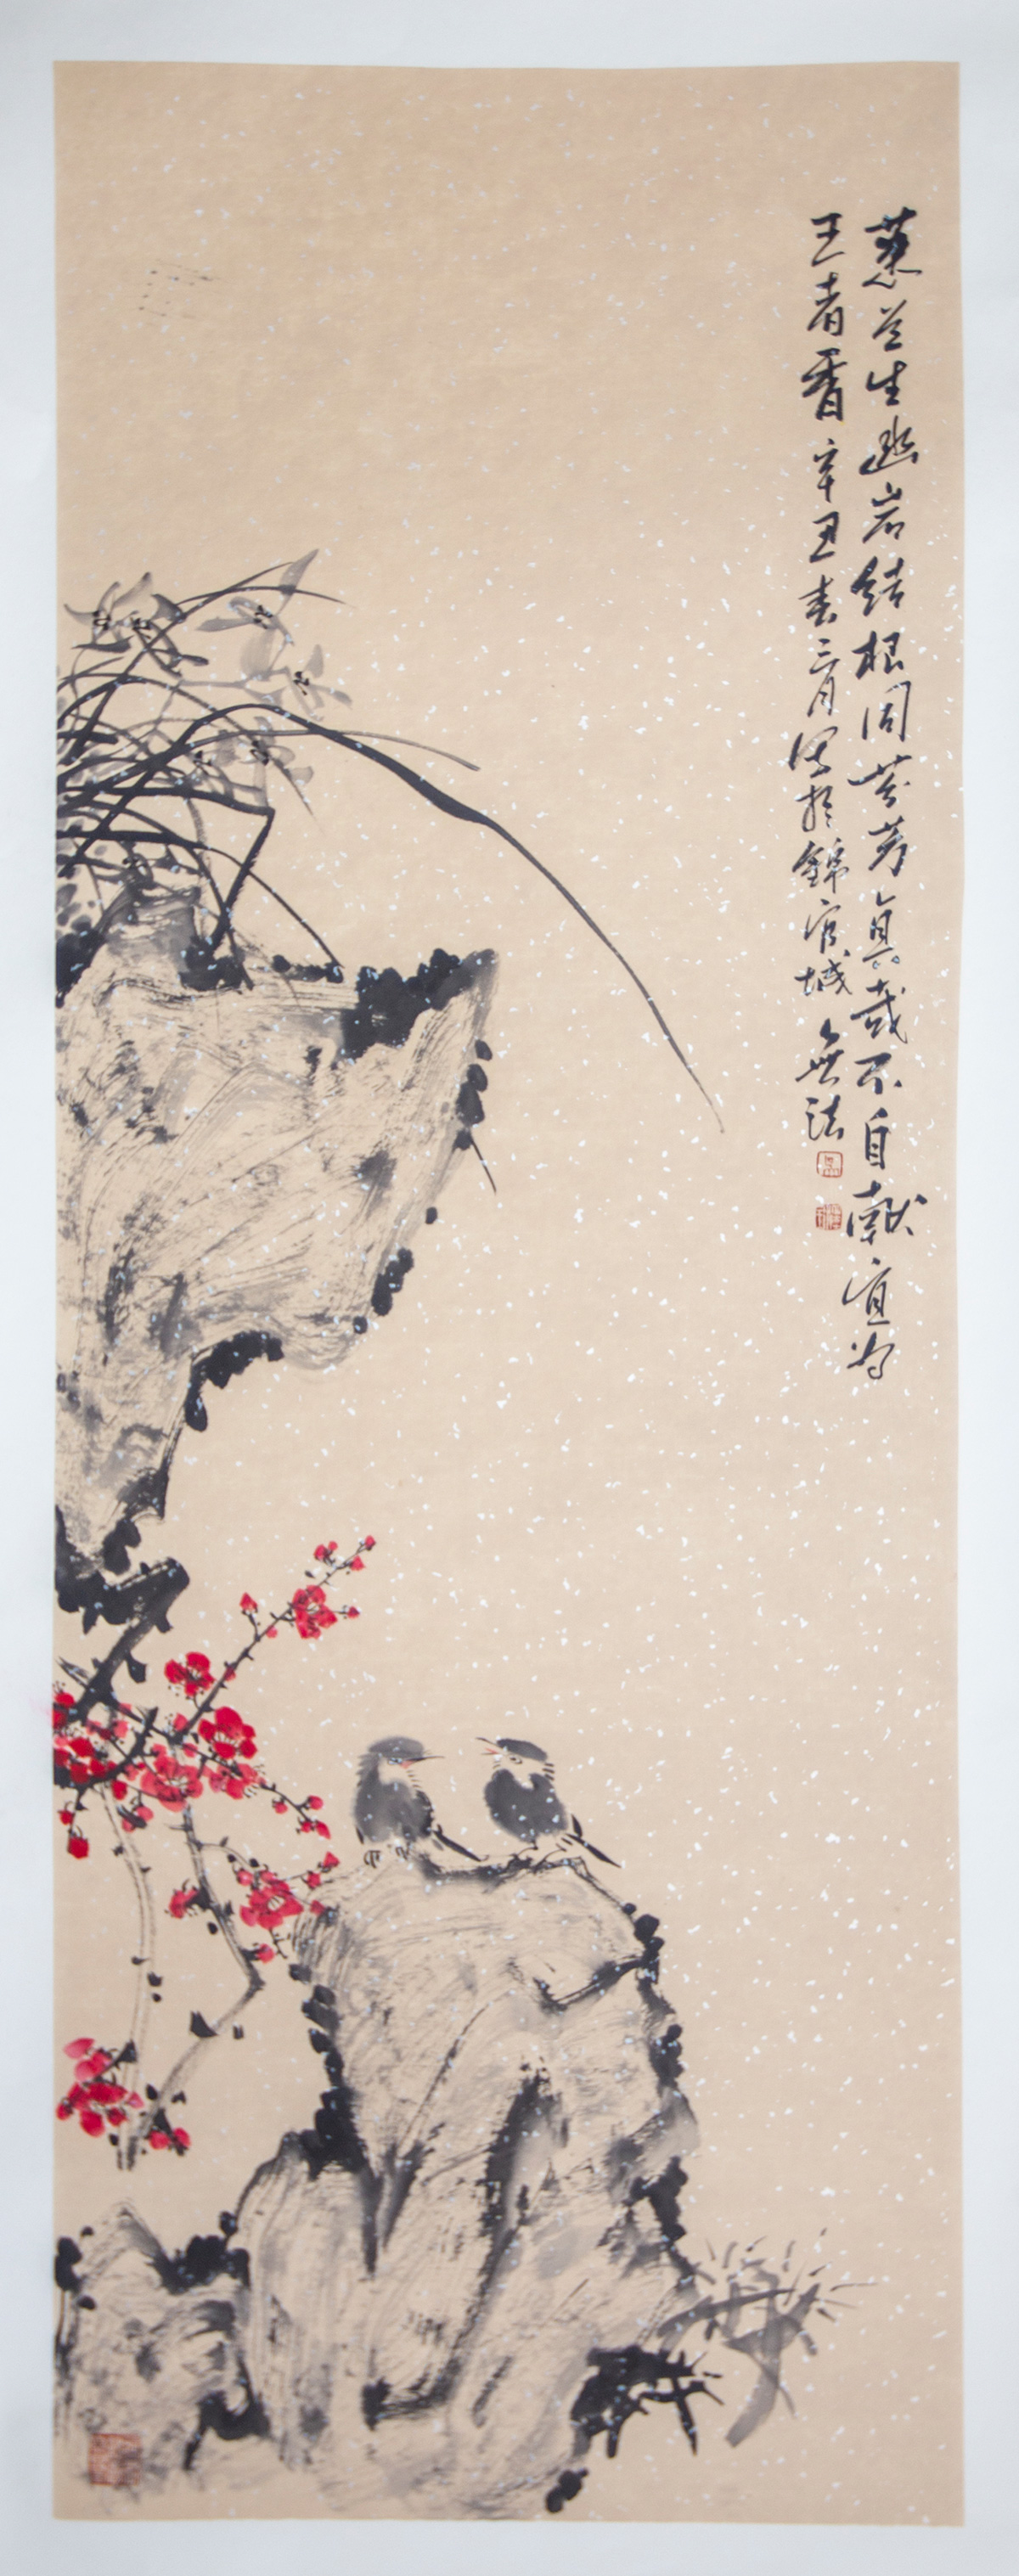 蕙兰生幽岩结根固芬芳真哉不自献宜为
王者香辛丑春三月写於锦官城无法